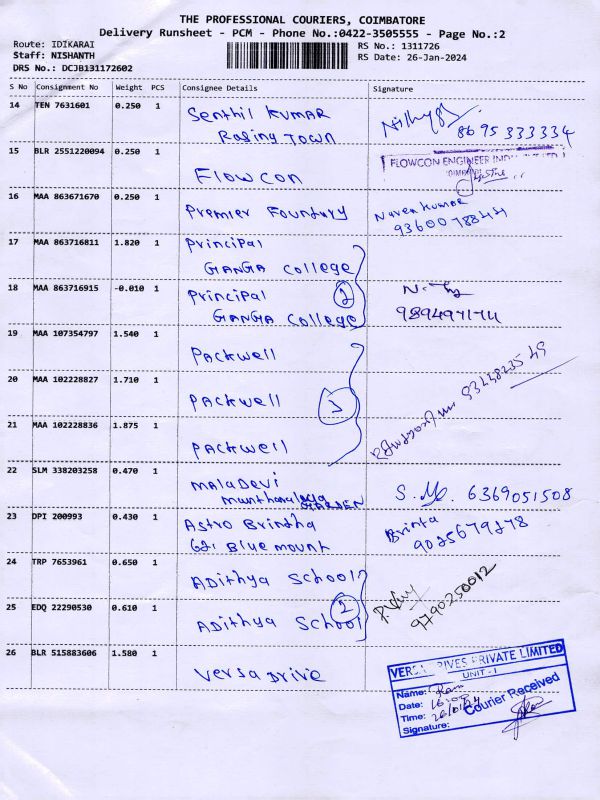 THE PROFESSIONAL COURIERS, COIMBATORE
Delivery Runsheet - PCM - Phone No.:0422-3505555 - Page No.:2
Route: IDIKARAI
Staff: NISHANTH
DRS No.: DCJB131172602
RS No.: 1311726
RS Date: 26-Jan-2024
S No Consignment No Weight PCS Consignee Details Signature
14 TEN 7631601 0.250 1 Senthil Kumar
Raging Town
8695333334
15 BLR 2551220094 0.250 1 Flowcon
FLOWCON ENGINEER
16 MAA 863671670 0.250 1 Premier Foundury
Naren Kumar
17 MAA 863716811 1.820 1 Principal
GANGA College
18 MAA 863716915 -0.010 1 Principal
GANGA College
2
19 MAA 107354797 1.540 1 Packwell
20 MAA 102228827 1.710 1 Packwell
3
21 MAA 102228836 1.875 1 Packwell
22 SLM 338203258 0.470 1 Maladevi
GARDEN
6369051508
23 DPI 200993 0.430 1 Astro Brintha
621 Blue mount
Brinta
24 TRP 7653961 0.650 1 Adithya School
9790250012
25 EDQ 22290530 0.610 1 Adithya School
2
26 BLR 515883606 1.580 1 Versa Drive
PRIVATE LIMITED
UNIT - I
Name: Ram
Date:
Time: 26/01/24
Courier Received
Signature: